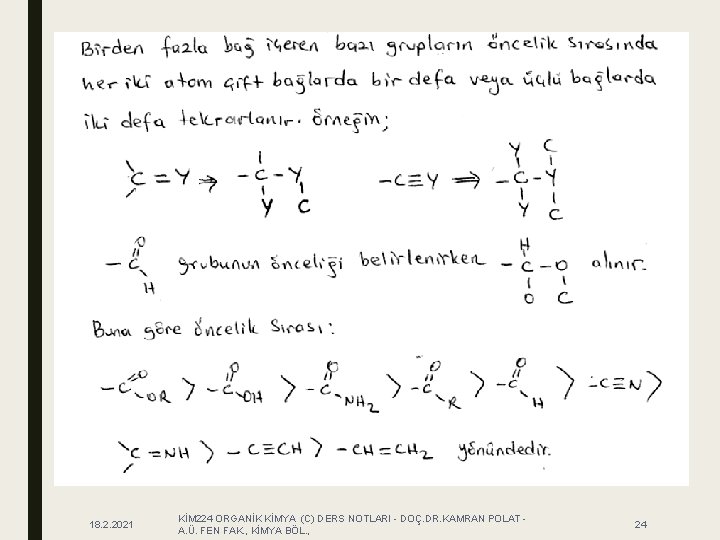 Birden fazla bağ içeren bazı grupların öncelik sırasında
her iki atom çift bağlarda bir defa veya üçlü bağlarda
iki defa tekrarlanır. Örneğin;
Y C
C=Y ⇒ -C-Y -C≡Y ⇒ -C-Y
Y C Y C
O H
-C grubunun önceliği belirlenirken -C-O alınır.
H O C
Buna göre öncelik sırası:
O O O O O
-C > -C > -C > -C > -C > -C≡N >
OR OH NH2 R H
C=NH > -C≡CH > -CH=CH2 yönündedir.
18.2.2021
KİM224 ORGANİK KİMYA (C) DERS NOTLARI - DOÇ.DR.KAMRAN POLAT -
A.Ü. FEN FAK., KİMYA BÖL.,
24